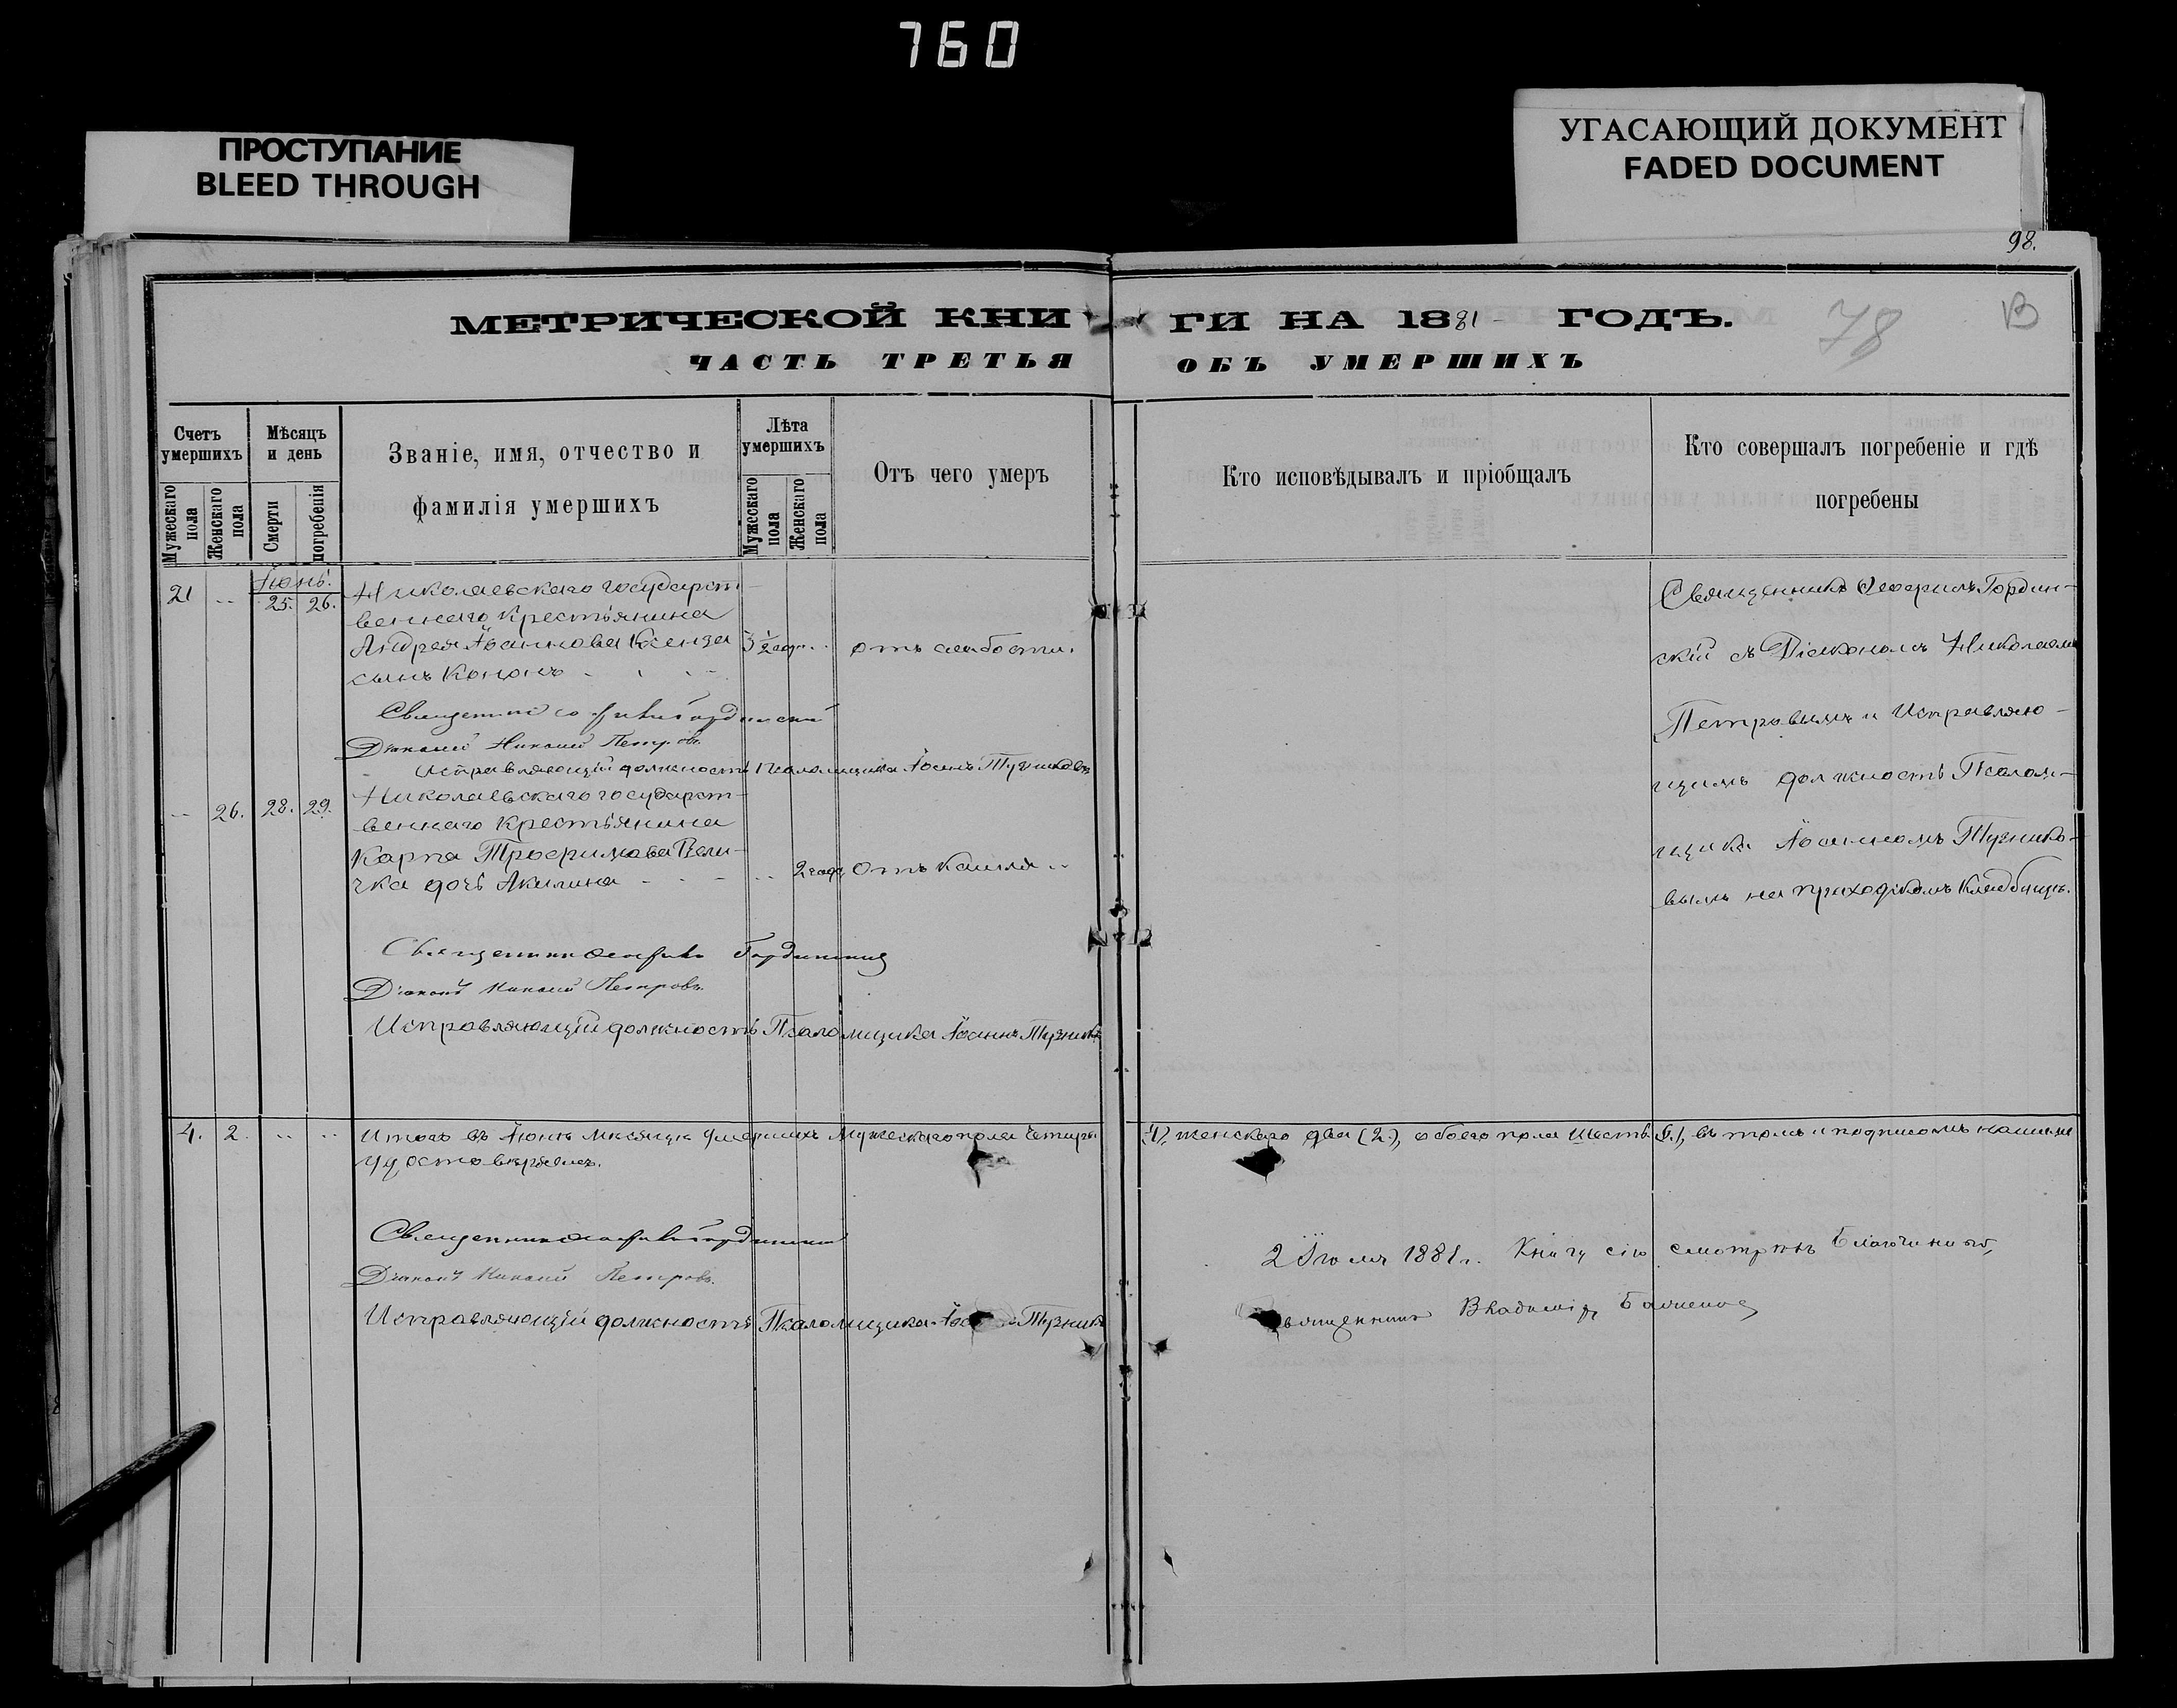 760
ПРОСТУПАНИЕ
BLEED THROUGH
УГАСАЮЩИЙ ДОКУМЕНТ
FADED DOCUMENT
98.
МЕТРИЧЕСКОЙ КНИГИ НА 1881 ГОДЪ.
78
В
ЧАСТЬ ТРЕТЬЯ ОБЪ УМЕРШИХЪ
Счетъ умершихъ
Мужескаго пола
Женскаго пола
Мѣсяцъ и день
Смерти
погребенія
Званіе, имя, отчество и
фамилія умершихъ
Лѣта умершихъ
Мужескаго пола
Женскаго пола
Отъ чего умеръ
Кто исповѣдывалъ и пріобщалъ
Кто совершалъ погребеніе и гдѣ
погребены
Іюнь.
21 .. 25. 26. Николаевскаго государст-
веннаго крестьянина
Андрея Іоаннова сынъ Кононъ 3 1/2 год. .. отъ слабости.
Священникъ Гординскій
Діаконъ Николай Петровъ.
Исправляющій должность Псаломщика Іоаннъ
.. 26. 28. 29. Николаевскаго государст-
веннаго крестьянина
Карпа Трофимова Вели-
чка дочь Акилина .. 2 год. отъ кашля ..
Священникъ Гординскій
Діаконъ Николай Петровъ.
Исправляющій должность Псаломщика Іоаннъ
Священникъ Гордин-
скій съ Діакономъ Николаемъ
Петровымъ и Исправляю-
щимъ должность Псалом-
щика Іоанномъ
вымъ на приходскомъ кладбищѣ.
4. 2. .. .. Итого въ Іюнѣ мѣсяцѣ умершихъ мужескаго пола четыре (4), женскаго два (2), обоего пола шесть (6), въ томъ и подписомъ нашимъ
удостовѣряемъ.
Священникъ Гординскій
Діаконъ Николай Петровъ.
Исправляющій должность Псаломщика
2 Іюля 1881 г. Книгу сію смотрѣлъ Благочинный,
Священникъ Владиміръ